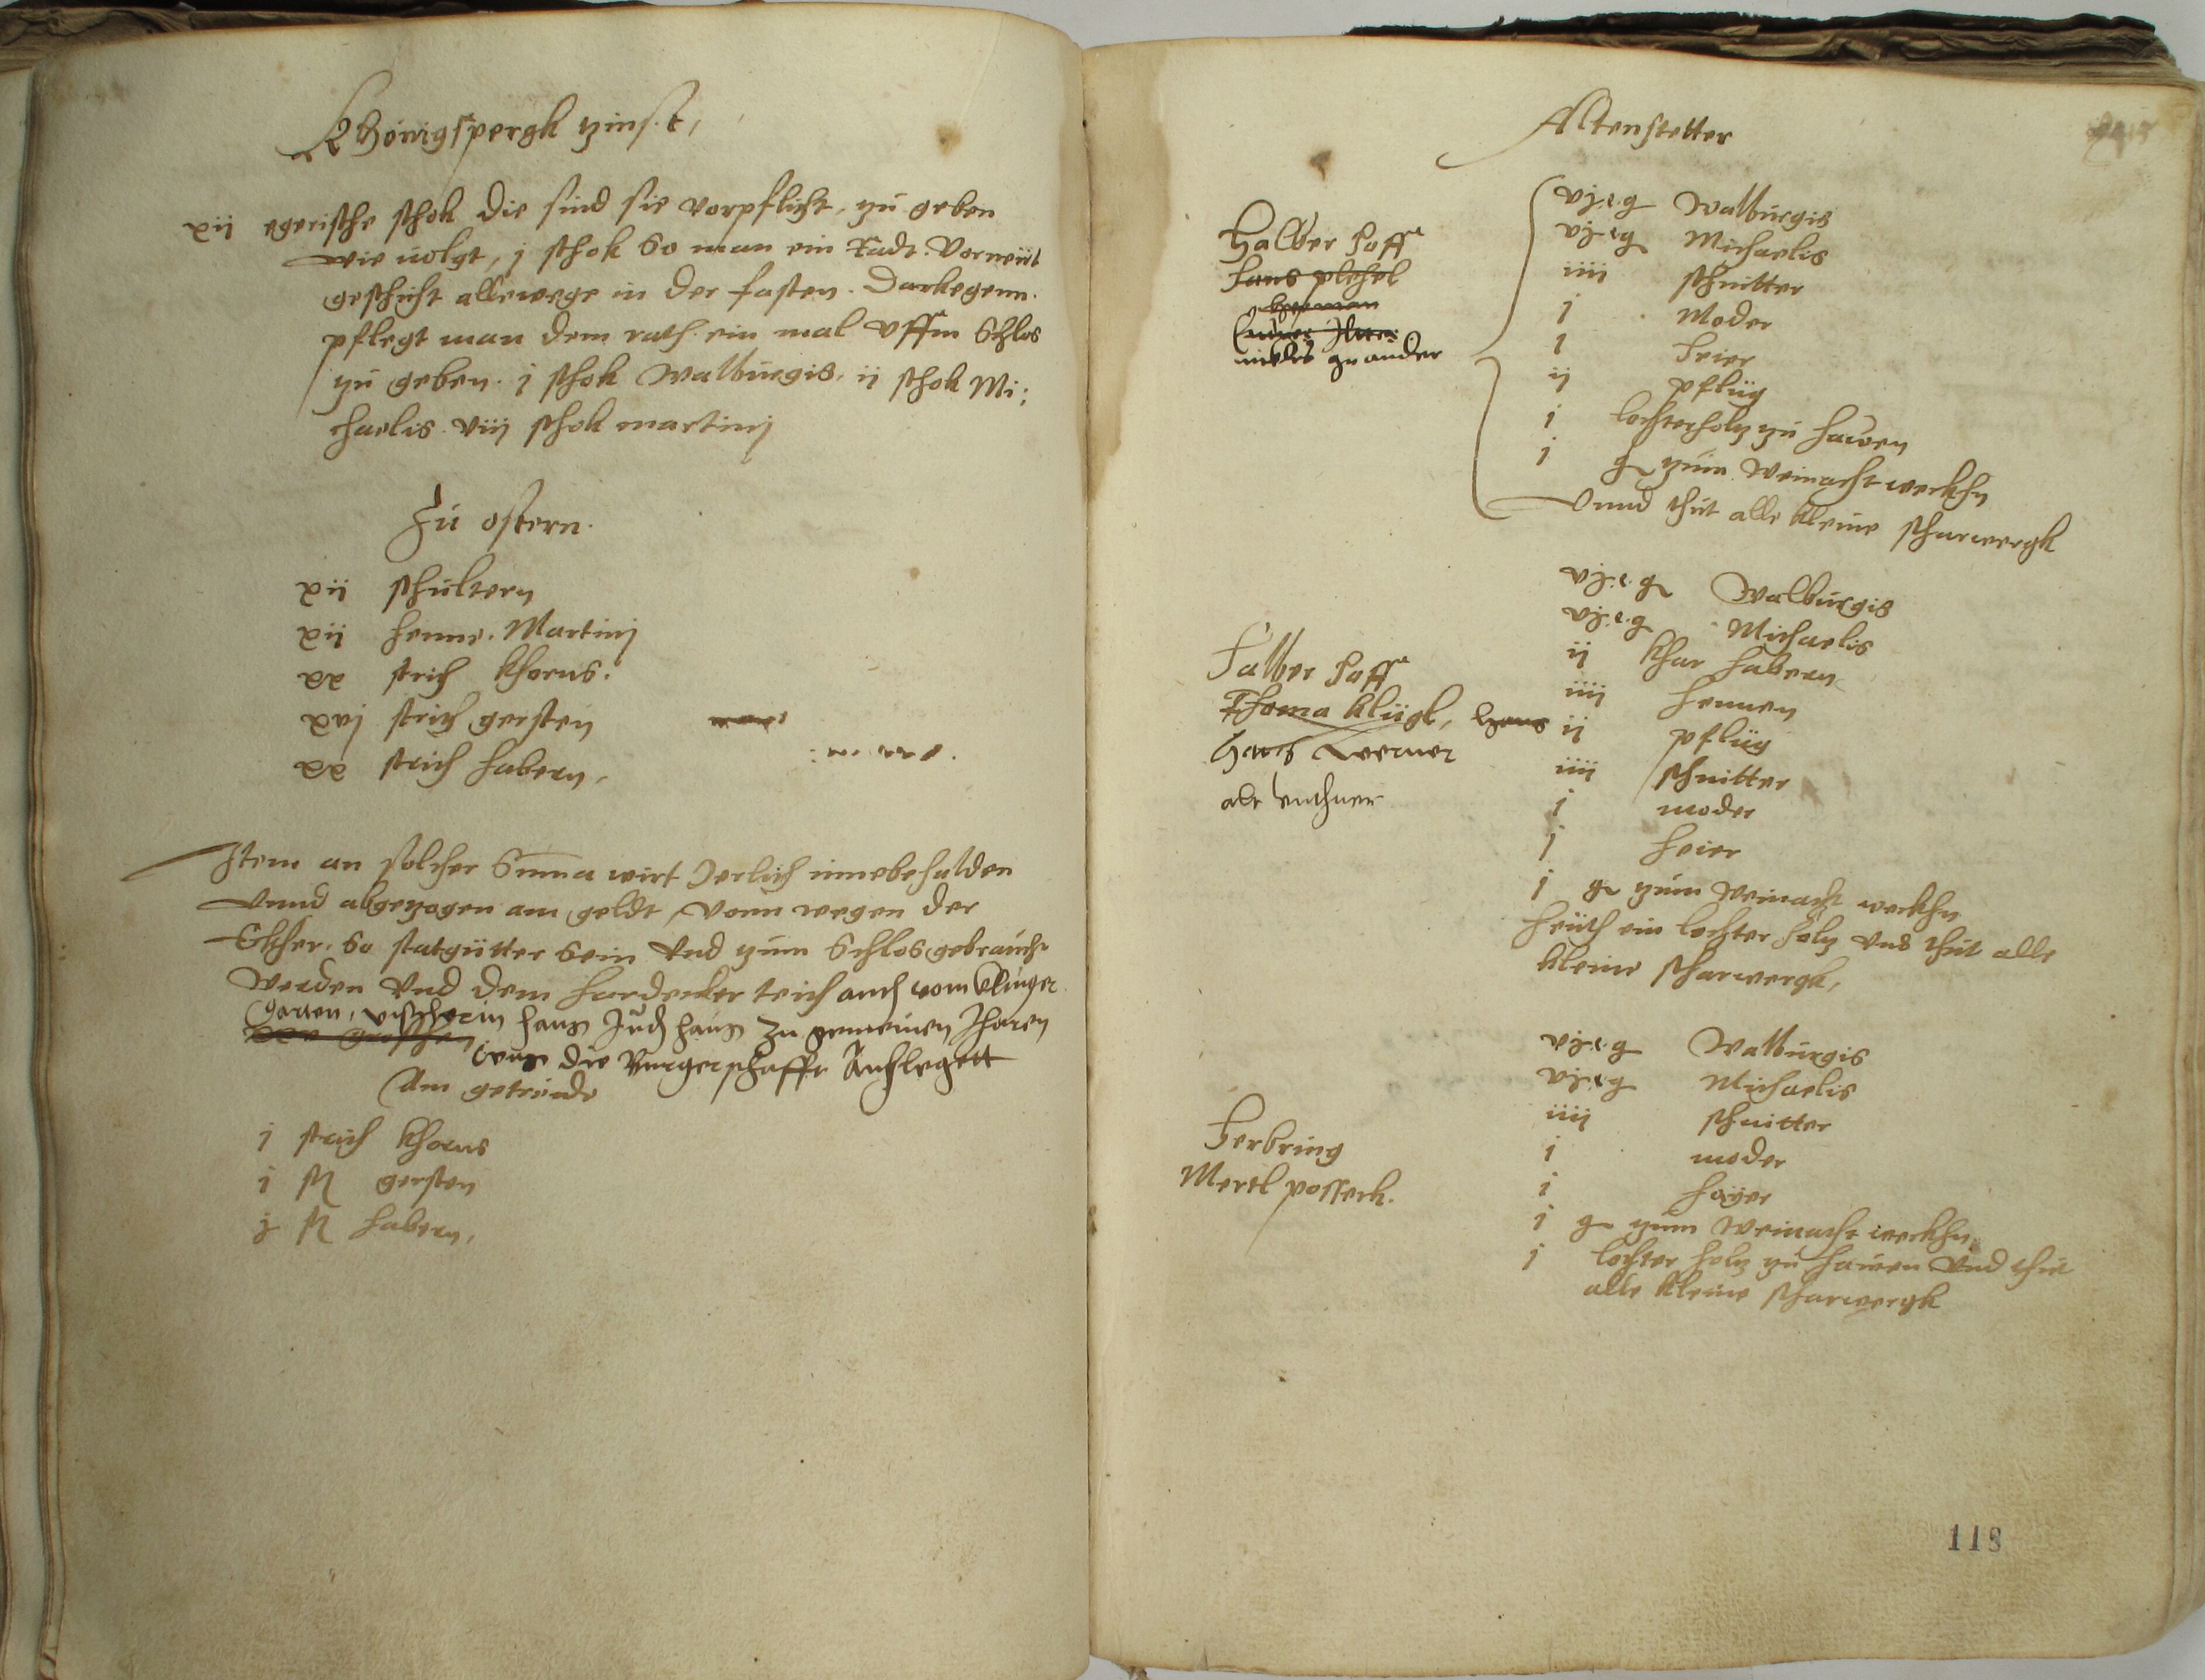 Khönigspergk zinst,
xij egerische schok die sind sie vorpflicht, zu geben
wie uolgt, j schok so man ein Radt vorneut
geschicht allewege in der fasten. Darkegenn.
pflegt man dem rath ein mal vffm Schlos
zu geben. j schok Walburgis, ij schok Mi:
chaelis. viij schok martinj
Zu ostern.
xij schultern
xij henne. Martinj
xx strich khorns.
xvj strich gersten
xx strich habern,
Item an solcher Summa wirt Jerlich innebehalden
vnnd abgezogen am geldt, vonn wegen der
Ekher, so statgütter sein vnd zum Schlos gebraucht
werden vnd dem hardecker teich auch vom
garten, haus Jud haus zu gemeinen Jharen
die Burgerschafft
Am getreide
j strich khorns
j str gersten
j str habern,
Altenstetter
Halber hoff
Hans plehel
nickel
vj s. g Walburgis
vj s. g Michaelis
iiij schnitter
j Moder
j heier
ij pflüg
j lochterholz zu hawen
j g zum Weinacht weckhn
vnnd thut alle kleine scharwergk
Halber hoff
Thoma klügl, Hans
Hans Werner
vj s. g Walburgis
vj s. g Michaelis
ij khar habern
iiij hennen
ij pflüg
iiij schnitter
j moder
j heier
j g zum Weinacht weckhn
heuth ein lochter holz vnd thut alle
kleine scharwergk,
Herbring
Mertl posseck.
vj s. g Walburgis
vj s. g Michaelis
iiij schnitter
j moder
j hayer
j g zum Weinacht weckhn
j lochter holz zu hawen vnd thut
alle kleine scharwergk
118